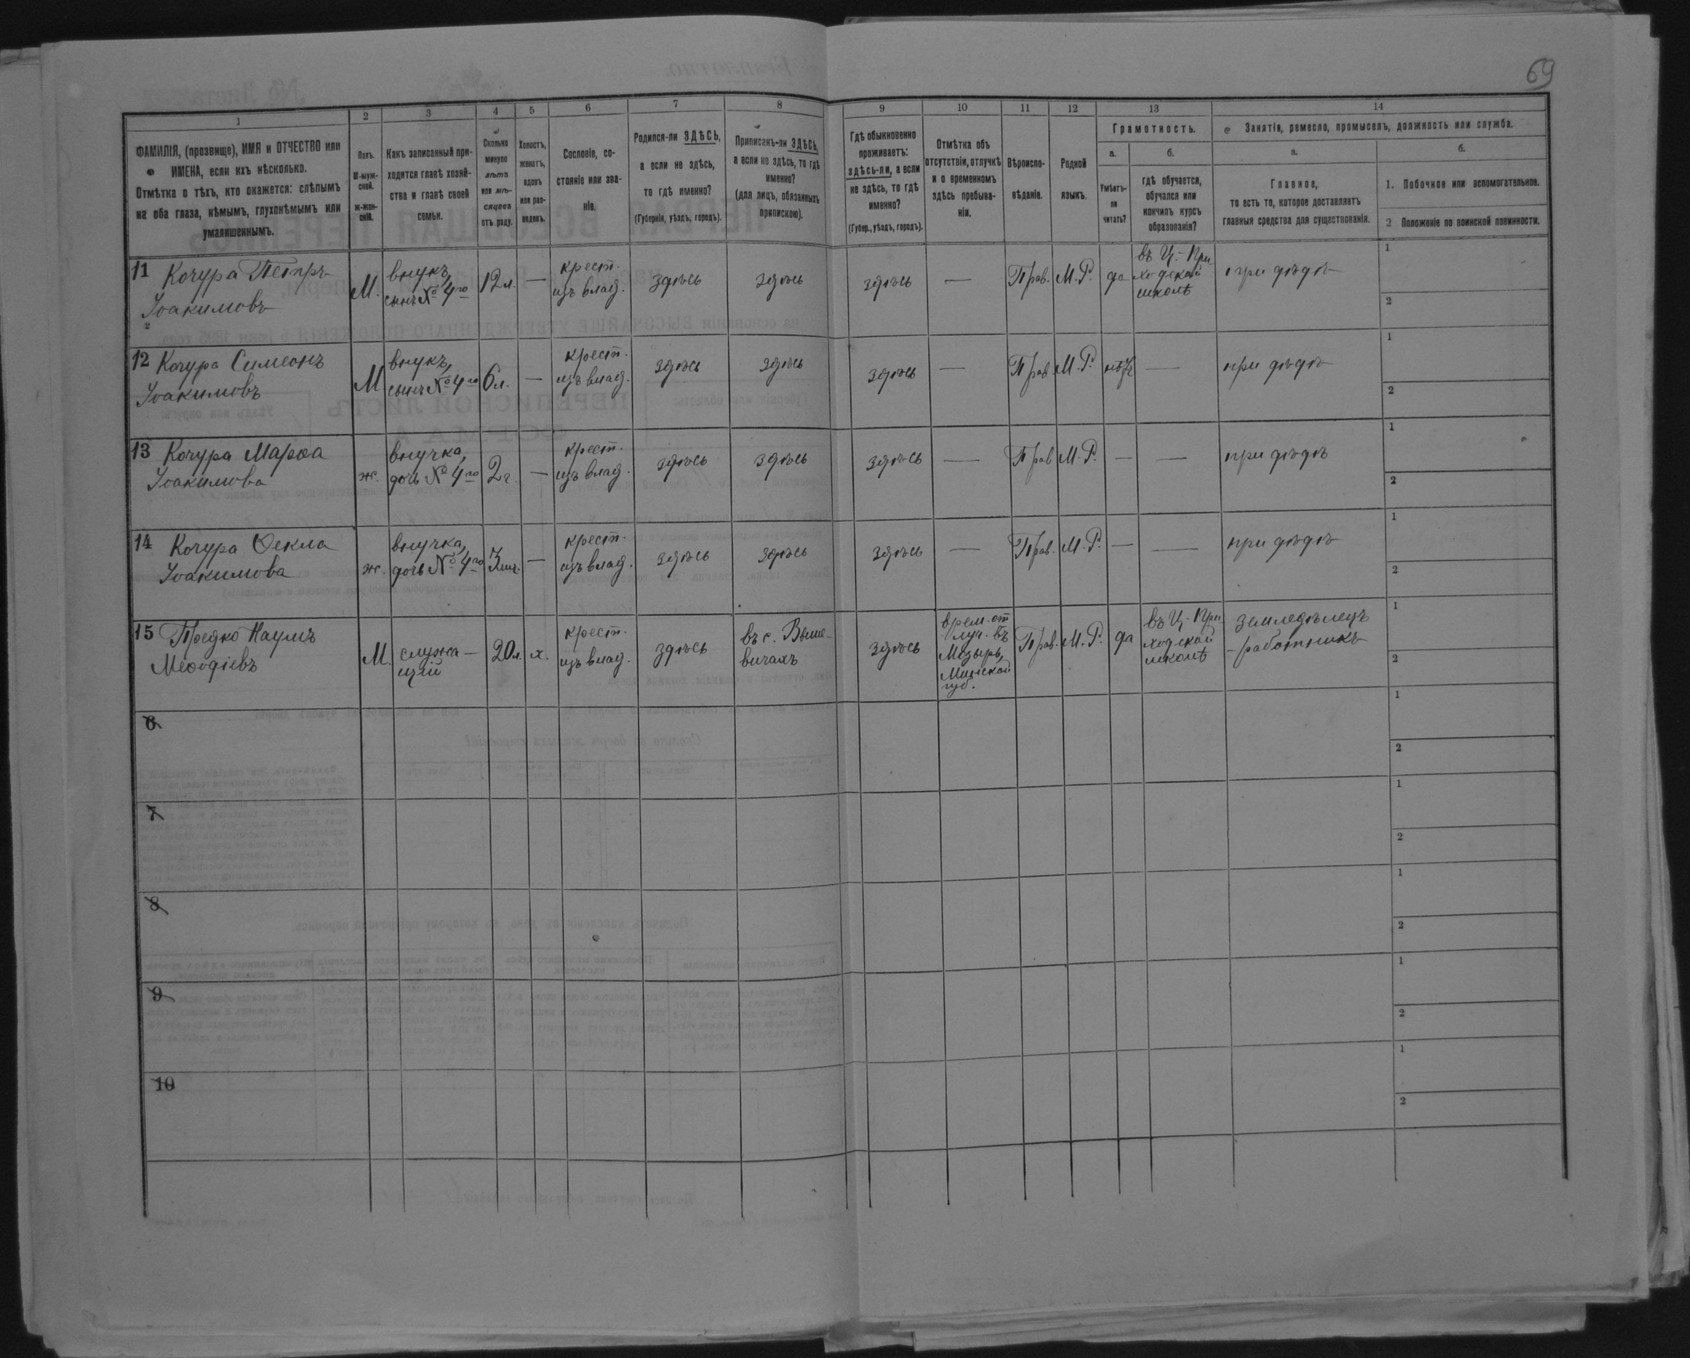 69
1 2 3 4 5 6 7 8 9 10 11 12 13 14
ФАМИЛІЯ, (прозвище), ИМЯ и ОТЧЕСТВО или
ИМЕНА, если ихъ нѣсколько.
Отмѣтка о тѣхъ, кто окажется: слѣпымъ
на оба глаза, нѣмымъ, глухонѣмымъ или
умалишеннымъ.
Полъ.
М-муж-
ской.
ж-жен-
скій.
Какъ записанный при-
ходится главѣ хозяй-
ства и главѣ своей
семьи.
Сколько
минуло
лѣтъ
или мѣ-
сяцевъ
отъ роду.
Холостъ,
женатъ,
вдовъ
или раз-
веденъ.
Сословіе, со-
стояніе или зва-
ніе.
Родился-ли ЗДѢСЬ,
а если не здѣсь,
то гдѣ именно?
(Губернія, уѣздъ, городъ).
Приписанъ-ли ЗДѢСЬ,
а если не здѣсь, то гдѣ
именно?
(для лицъ, обязанныхъ
припискою).
Гдѣ обыкновенно
проживаетъ:
здѣсь-ли, а если
не здѣсь, то гдѣ
именно?
(Губер., уѣздъ, городъ).
Отмѣтка объ
отсутствіи, отлучкѣ
и о временномъ
здѣсь пребыва-
ніи.
Вѣроиспо-
вѣданіе.
Родной
языкъ.
Грамотность.
а.
Умѣетъ-
ли
читать?
б.
гдѣ обучается,
обучался или
кончилъ курсъ
образованія?
Занятія, ремесло, промыселъ, должность или служба.
а.
Главное,
то есть то, которое доставляетъ
главныя средства для существованія.
б.
1. Побочное или вспомогательное.
2 Положеніе по воинской повинности.
11 Кочура Петръ
Іоакимовъ
М.
внукъ,
сынъ № 4го
12 л.
—
крест.
изъ влад.
здѣсь
здѣсь
здѣсь
—
Прав.
М.Р.
да
въ Ц.-При
ходской
школѣ
при дѣдѣ
1
2
12 Кочура Симеонъ
Іоакимовъ
М
внукъ,
сынъ № 4го
6 л.
—
крест.
изъ влад.
здѣсь
здѣсь
здѣсь
—
Прав.
М.Р.
нѣтъ
—
при дѣдѣ
1
2
13 Кочура Марѳа
Іоакимова
ж.
внучка,
дочь № 4го
2 г.
—
крест.
изъ влад.
здѣсь
здѣсь
здѣсь
—
Прав
М.Р.
—
—
при дѣдѣ
1
2
14 Кочура Ѳекла
Іоакимова
ж.
внучка,
дочь № 4го
3 мѣс.
—
крест.
изъ влад.
здѣсь
здѣсь
здѣсь
—
Прав.
М.Р.
—
—
при дѣдѣ
1
2
15 Предко Наумъ
Меѳодіевъ
М.
служа-
щій
20 л.
х.
крест.
изъ влад.
здѣсь
въ с. Выше-
вичахъ
здѣсь
врем. от
луч. въ
Мозырь,
Минской
губ.
Прав.
М.Р.
да
въ Ц.-При
ходской
школѣ
земледѣлецъ
-работникъ
1
2
6
1
2
7
1
2
8
1
2
9
1
2
10
1
2